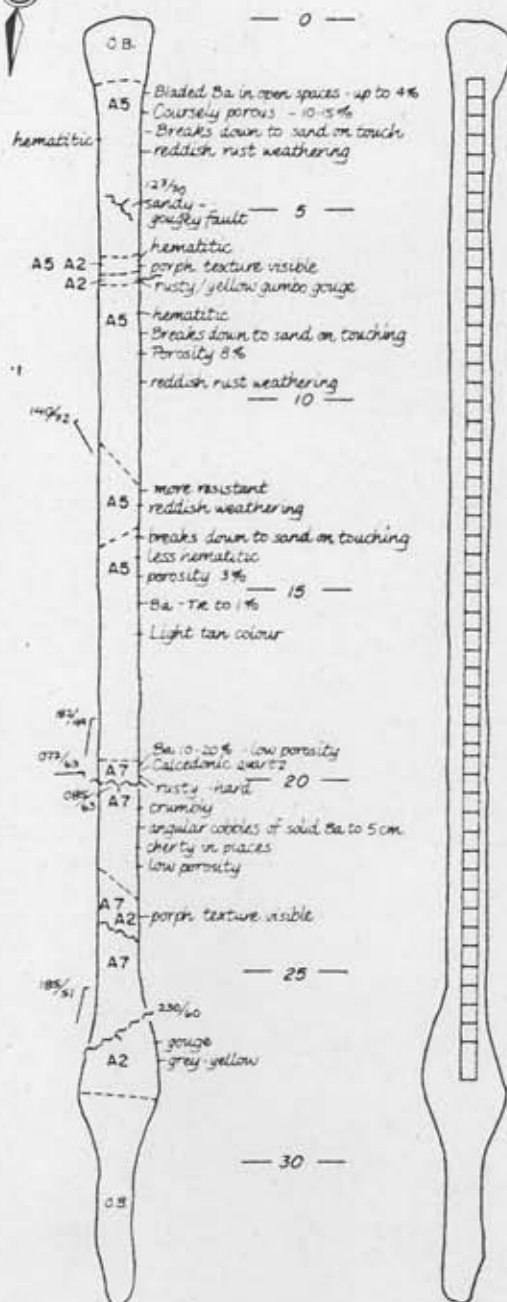 0
O.B.
A5
Bladed Ba in open spaces - up to 4%
Coursely porous - 10-15%
hematitic
Breaks down to sand on touch
reddish rust weathering
sandy -
gougey fault
5
hematitic
A5 A2
porph texture visible
A2
rusty/yellow gumbo gouge
A5
hematitic
Breaks down to sand on touching
Porosity 8%
reddish rust weathering
10
more resistant
A5
reddish weathering
breaks down to sand on touching
A5
less hematitic
porosity 3%
15
Ba - TR to 1%
Light tan colour
Ba 10-20% - low porosity
A7
Calcedonic quartz
072/63
rusty - hard
20
085/63
A7
crumbly
angular cobbles of solid Ba to 5 cm
cherty in places
low porosity
A7
A2
porph texture visible
A7
25
185/51
230/60
gouge
A2
grey-yellow
30
O.B.